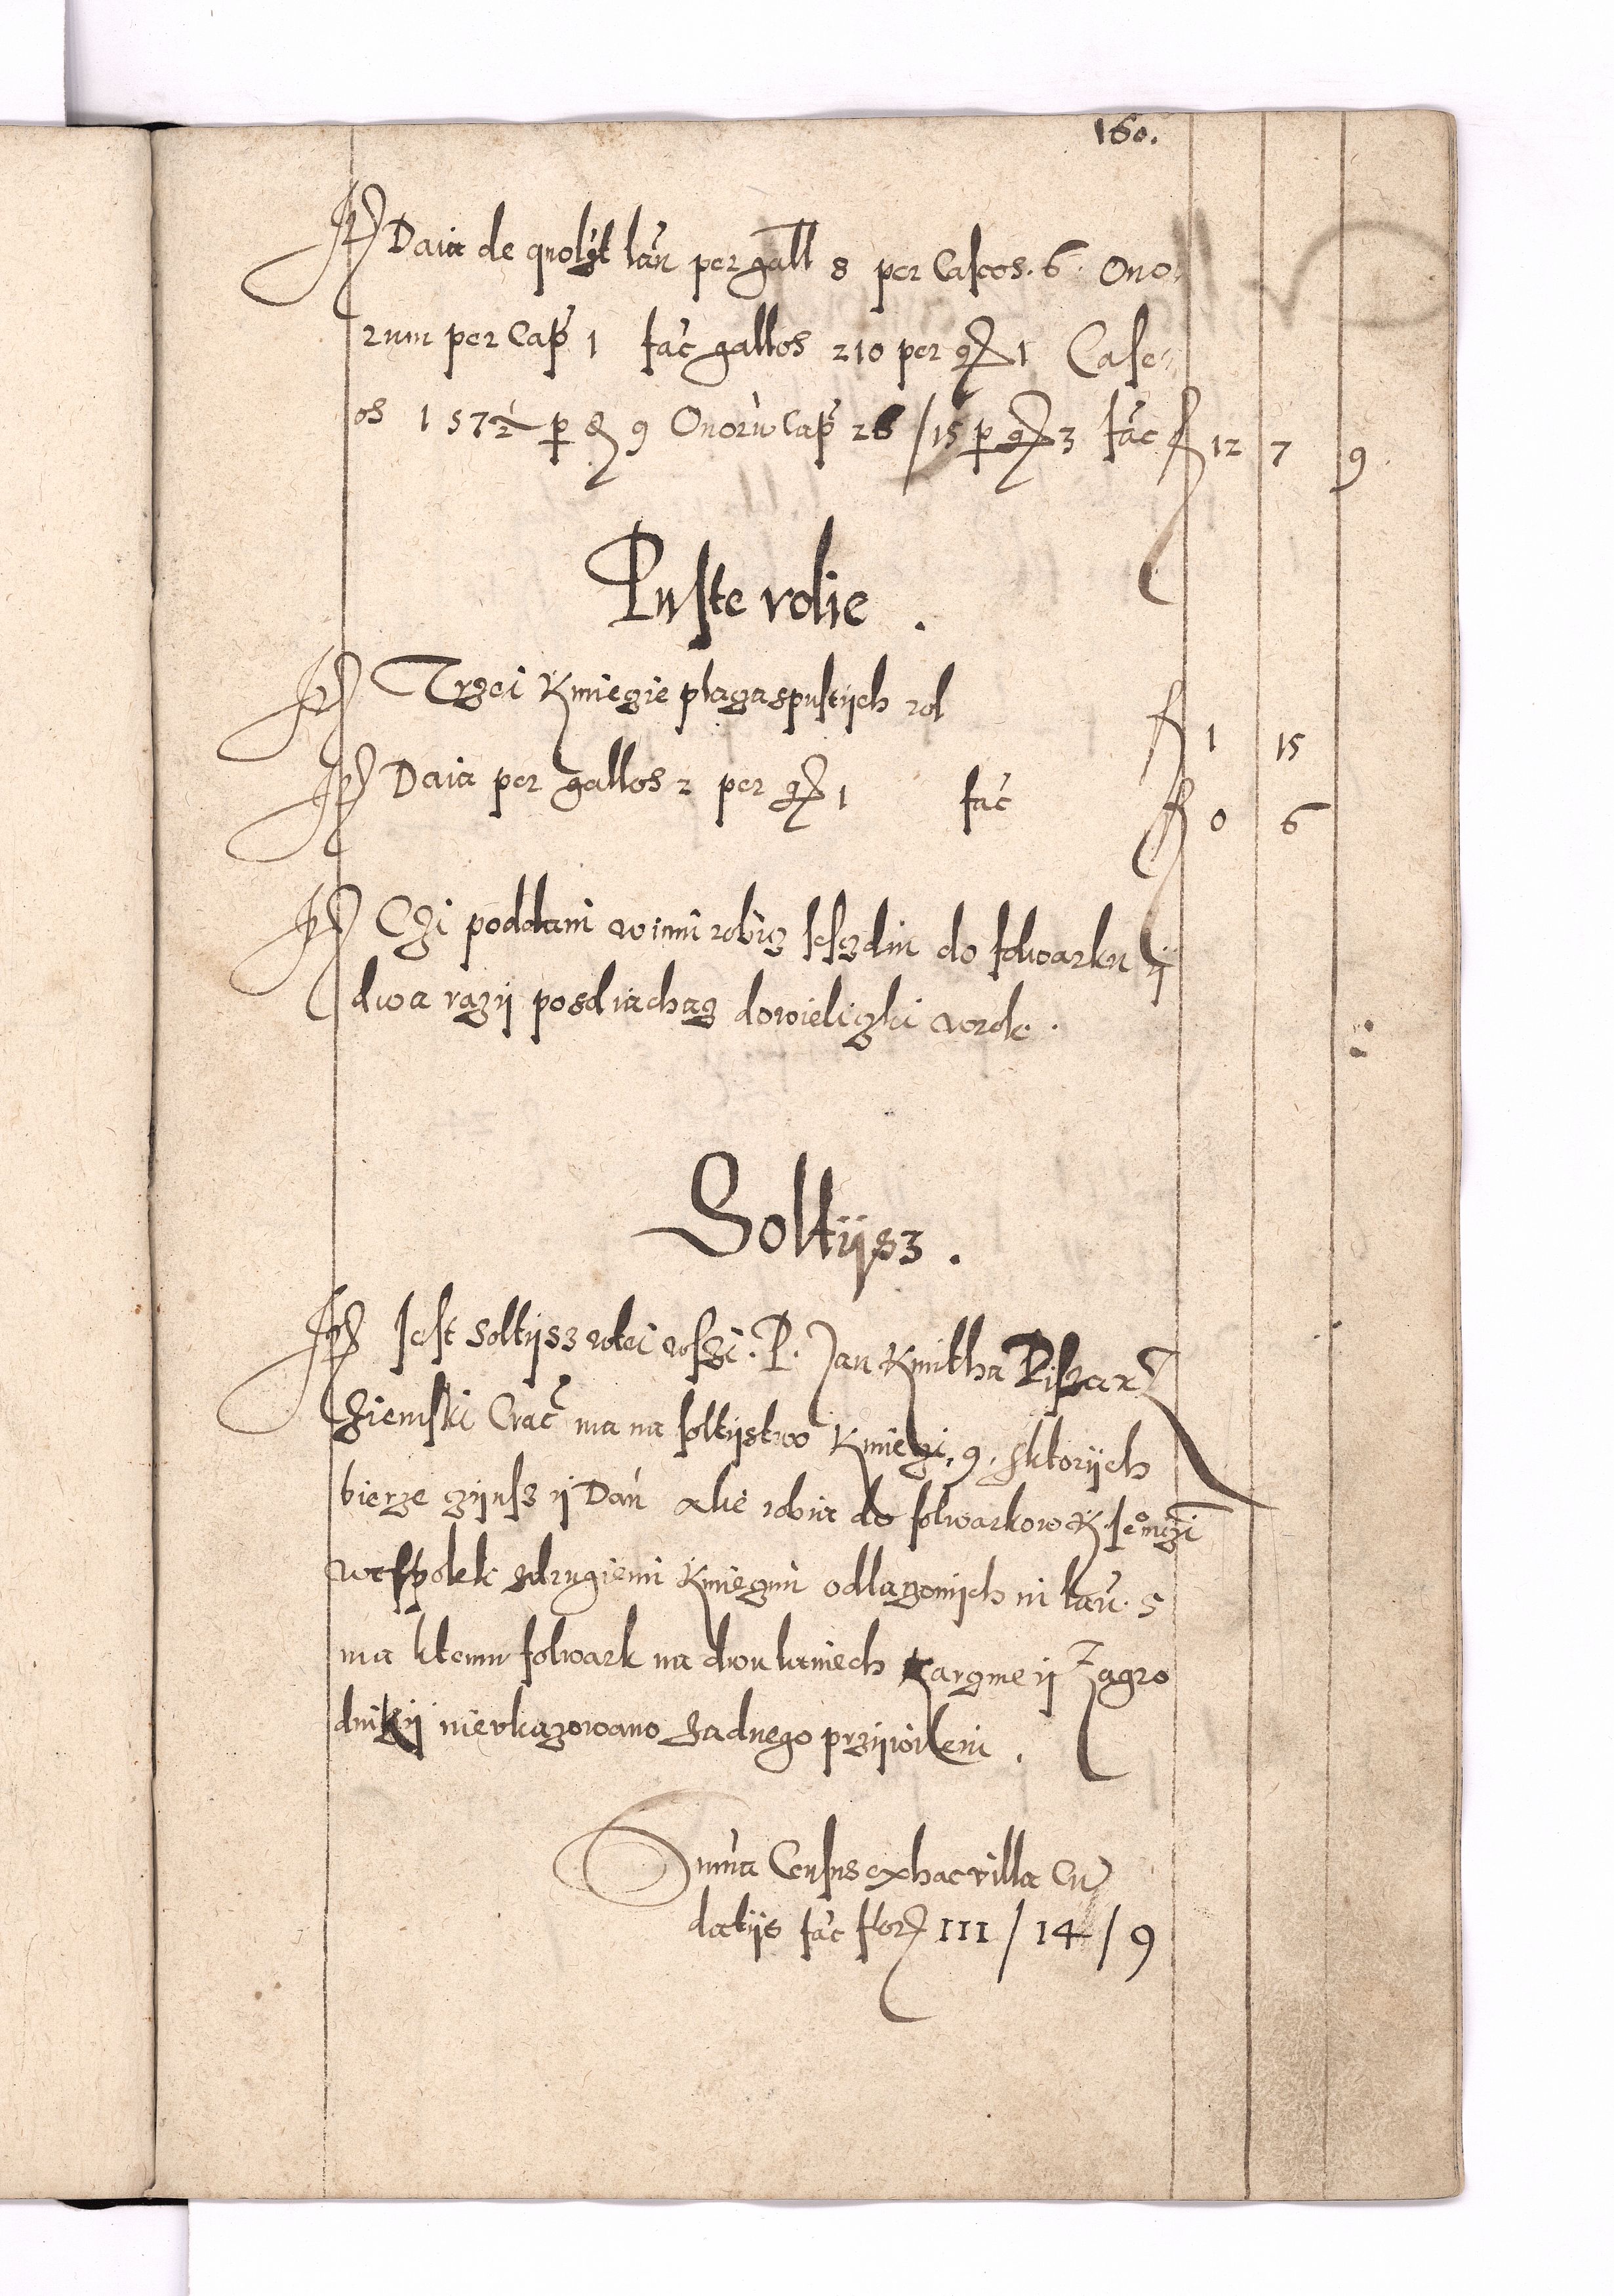 160.
It Daia de quolt lan per gall 8 per Caseos. 6. Ovo-
rum per Cap 1 fac gallos 210 per gr 1 Case-
os 157½ p d 9 Ovoru Cap 26/15 p gr 3 fac f 12 7 9
Puste rolie.
It Trzei Kmiezie placza spustych rol f 1 15
It Daia per gallos 2 per gr 1 fac f 0 6
It Czi poddani winni robicz seszdni do folwarku y
dwa razy posdwiachacz dowieliczki wrok.
Soltysz.
It Jest Soltysz wtei wszi. P. Jan Kmitha Pisar
Ziemski Crac ma na soltystwo Kmiezi, 9, sktorych
bierze czynsz y Dan Ale robia do folwarkow K. Jeº mczi
wespolek sdrugiemi Kmieczmi odlazonych ni lan. 5
ma ktemu folwark na dwu laniech Karczme y Zagro
dniky nievkazowano zadnego przywileiu.
Suma Census exhac villa Cu
datys fac flor 111/14/9